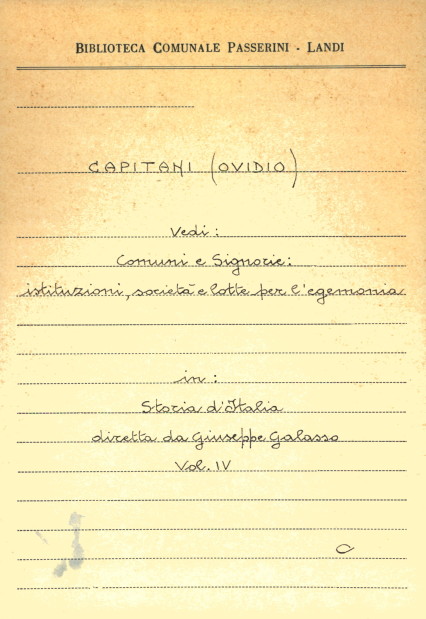 BIBLIOTECA COMUNALE PASSERINI - LANDI
CAPITANI (OVIDIO)
Vedi:
Comuni e Signorie:
istituzioni, società e lotte per l'egemonia
in:
Storia d'Italia
diretta da Giuseppe Galasso
Vol. IV